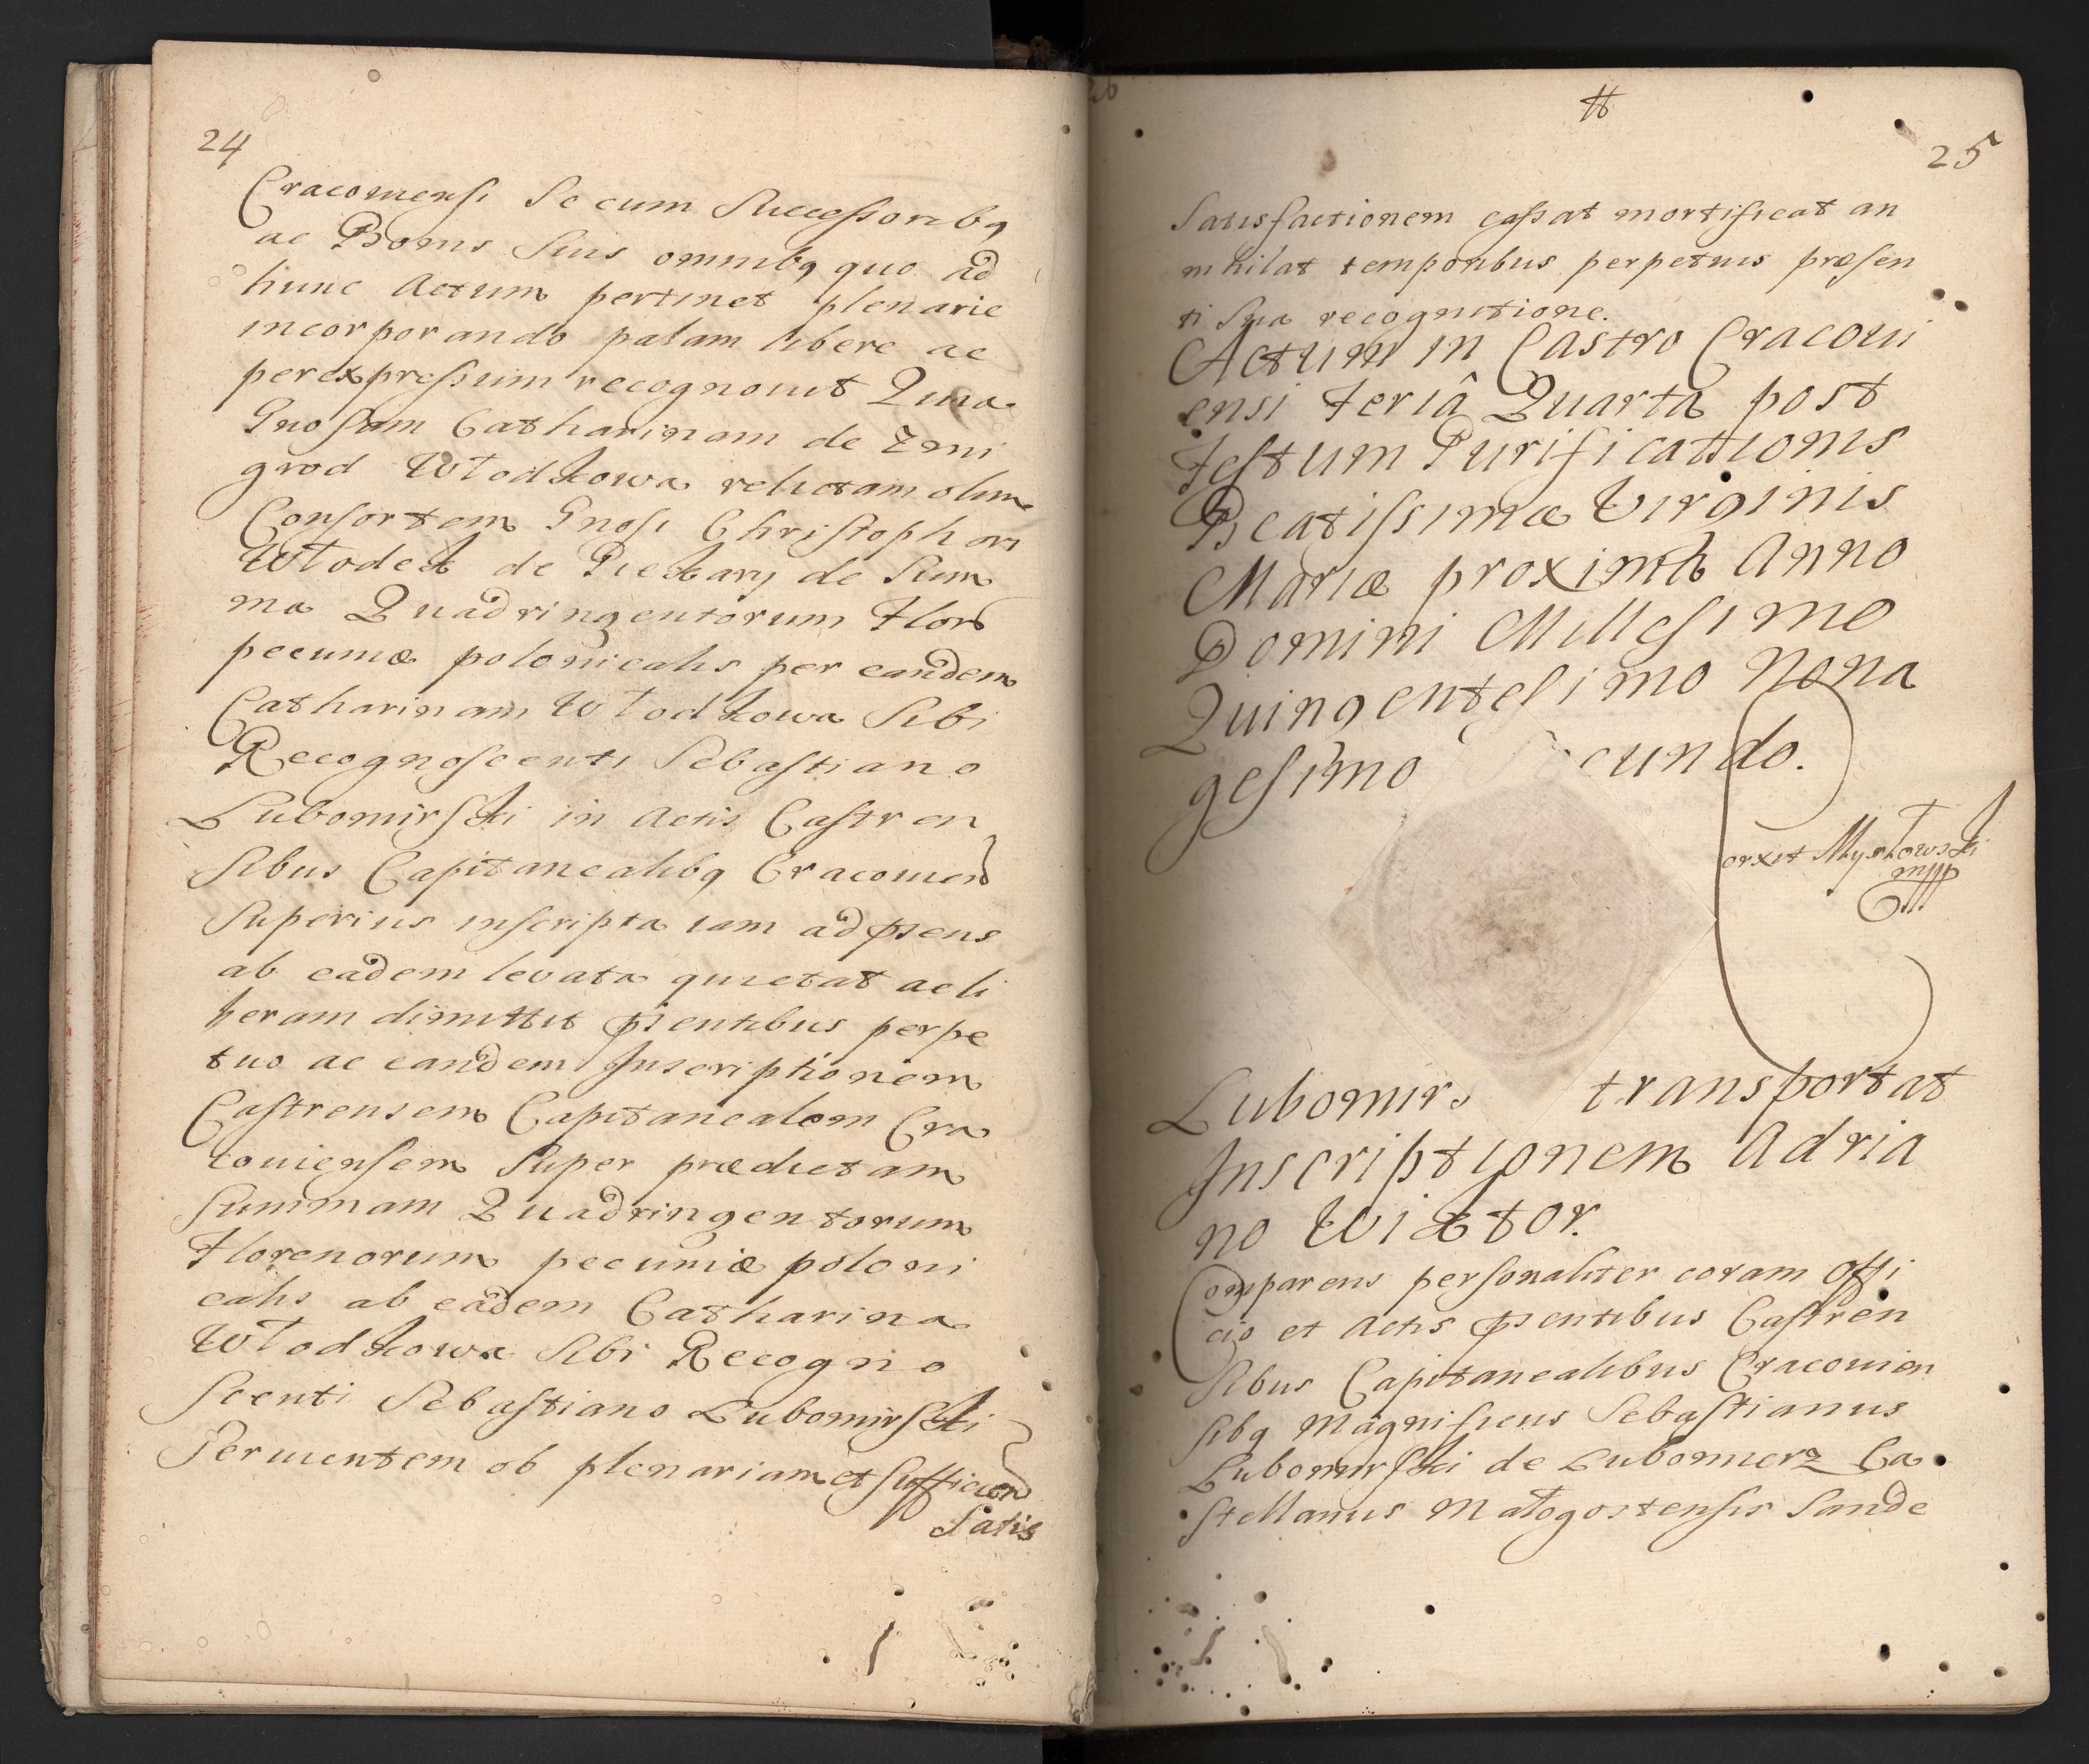 24
Cracouiensi se cum Successoribq
ac Bonis Suis omnibq quo ad
hunc Actum pertinet plenarie
incorporando palam libere ac
per expressum recognouit Quia
Gnosam Catharinam de Zmi
grod Włodkowa relictam olim
Consortem Gnosi Christophori
Włodek de Piekary de Sum
ma Quadringentorum Flor
pecuniæ polonicalis per eandem
Catharinam Włodkowa Sibi
Recognoscenti Sebastiano
Lubomirski in Actis Castren
sibus Capitanealibq Cracouien
Superius inscripta iam ad psens
ab eadem leuata quietat ac li
beram dimittit psentibus perpe
tuo ac eandem Inscriptionem
Castrensem Capitanealem Cra
couiensem Super prædictam
Summam Quadringentorum
Florenorum pecuniæ poloni
calis ab eadem Catharina
Włodkowa Sibi Recogno
scenti Sebastiano Lubomirski
Seruientem ob plenariam et sufficien
Satis
25
Satisfactionem cassat mortificat an
nihilat temporibus perpetuis præsen
ti Sua recognitione.
Actum in Castro Cracoui
ensi Feriâ Quarta post
Festum Purificationis
Beatissimæ Virginis
Mariæ proxima Anno
Domini Millesimo
Quingentesimo Nona
gesimo cundo.
Lubomirs transportat
Inscriptionem Adria
no Wiktor.
Comparens personaliter coram Offi
cio et Actis psentibus Castren
sibus Capitanealibus Cracouien
sibq Magnificus Sebastianus
Lubomirski de Lubomierz Ca
stellanus Małogostensis Sande